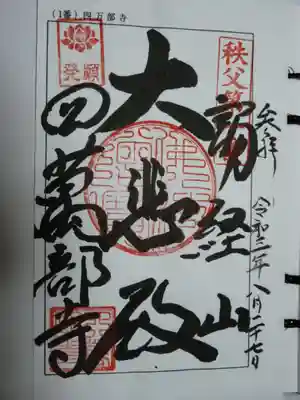 (1番) 四万部寺
秩父第
発願
参拝 令和三年 八月二十七日
誦経山
大悲殿
四萬部寺